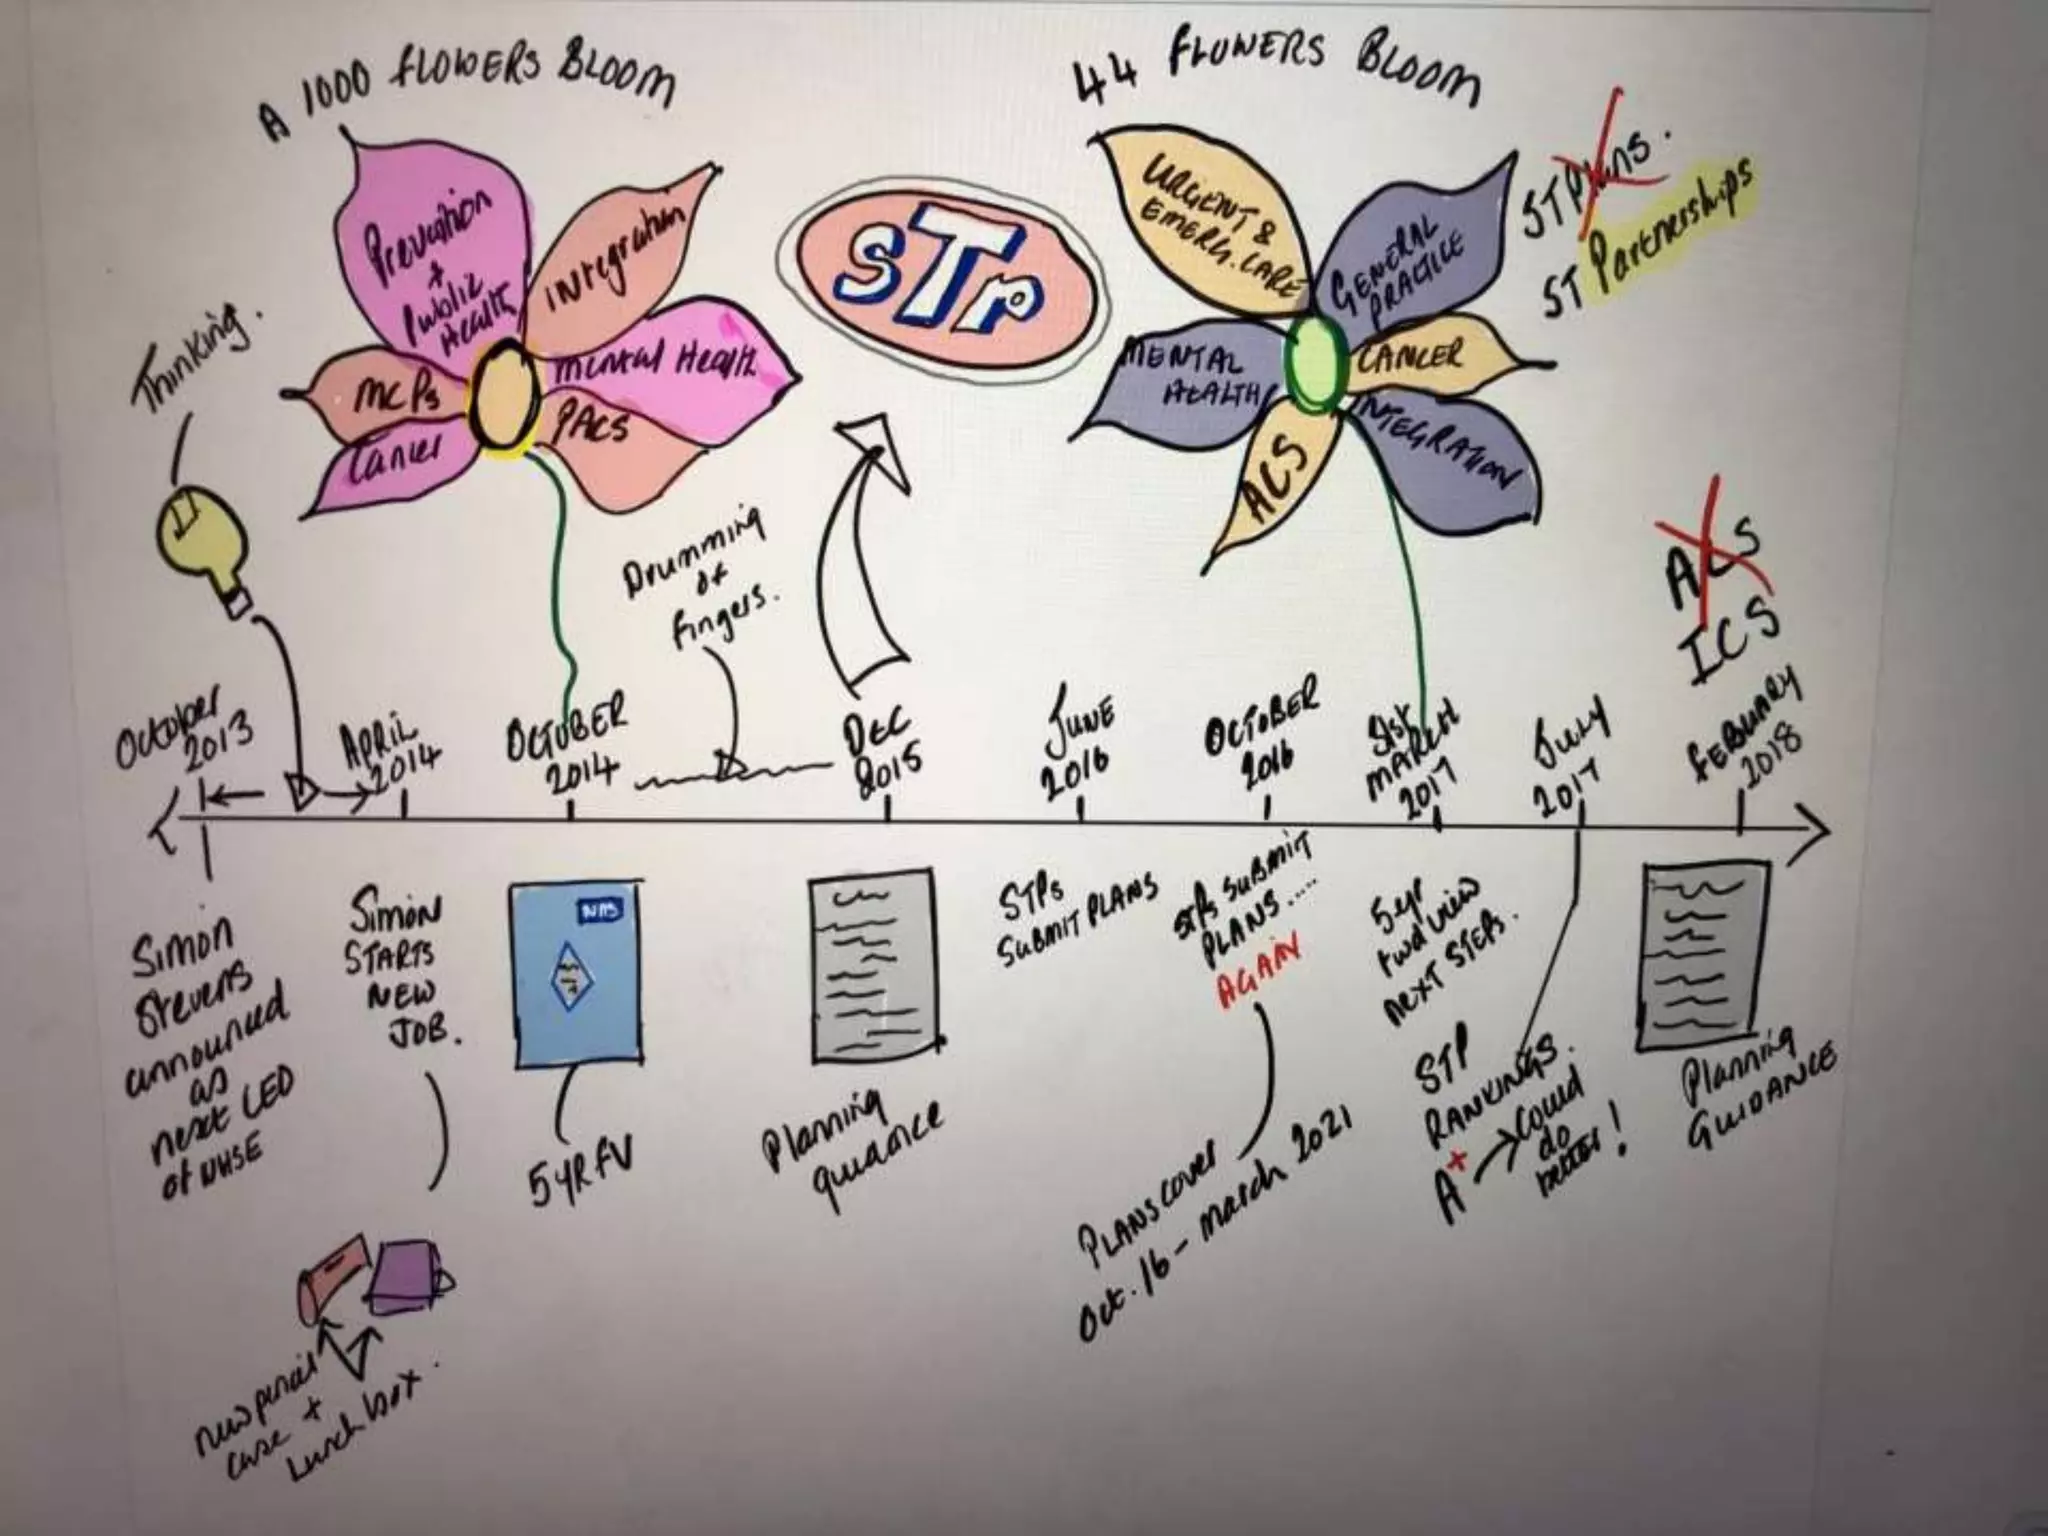 A 1000 FLOWERS BLOOM
44 FLOWERS BLOOM
Prevention
+
Public
Health
Integration
Mental Health
PACS
MCPs
Cancer
STP
URGENT &
EMERG. CARE
GENERAL
PRACTICE
CANCER
INTEGRATION
ACS
MENTAL
HEALTH
STPlans.
ST Partnerships
Thinking.
Drumming
of
fingers.
ACS
ICS
October
2013
APRIL
2014
OCTOBER
2014
DEC
2015
JUNE
2016
OCTOBER
2016
31st
MARCH
2017
JULY
2017
FEBUARY
2018
Simon
Stevens
announced
as
next CEO
of NHSE
Simon
STARTS
NEW
JOB.
new pencil
case +
lunch box.
NHS
5YRFV
Planning
guidance
STPs
SUBMIT PLANS
STPs SUBMIT
PLANS.....
AGAIN
PLANS COVER
Oct. 16 - march 2021
5yr
fwd view
next STEPS.
STP
RANKINGS.
A+ → Could
do
better!
Planning
GUIDANCE